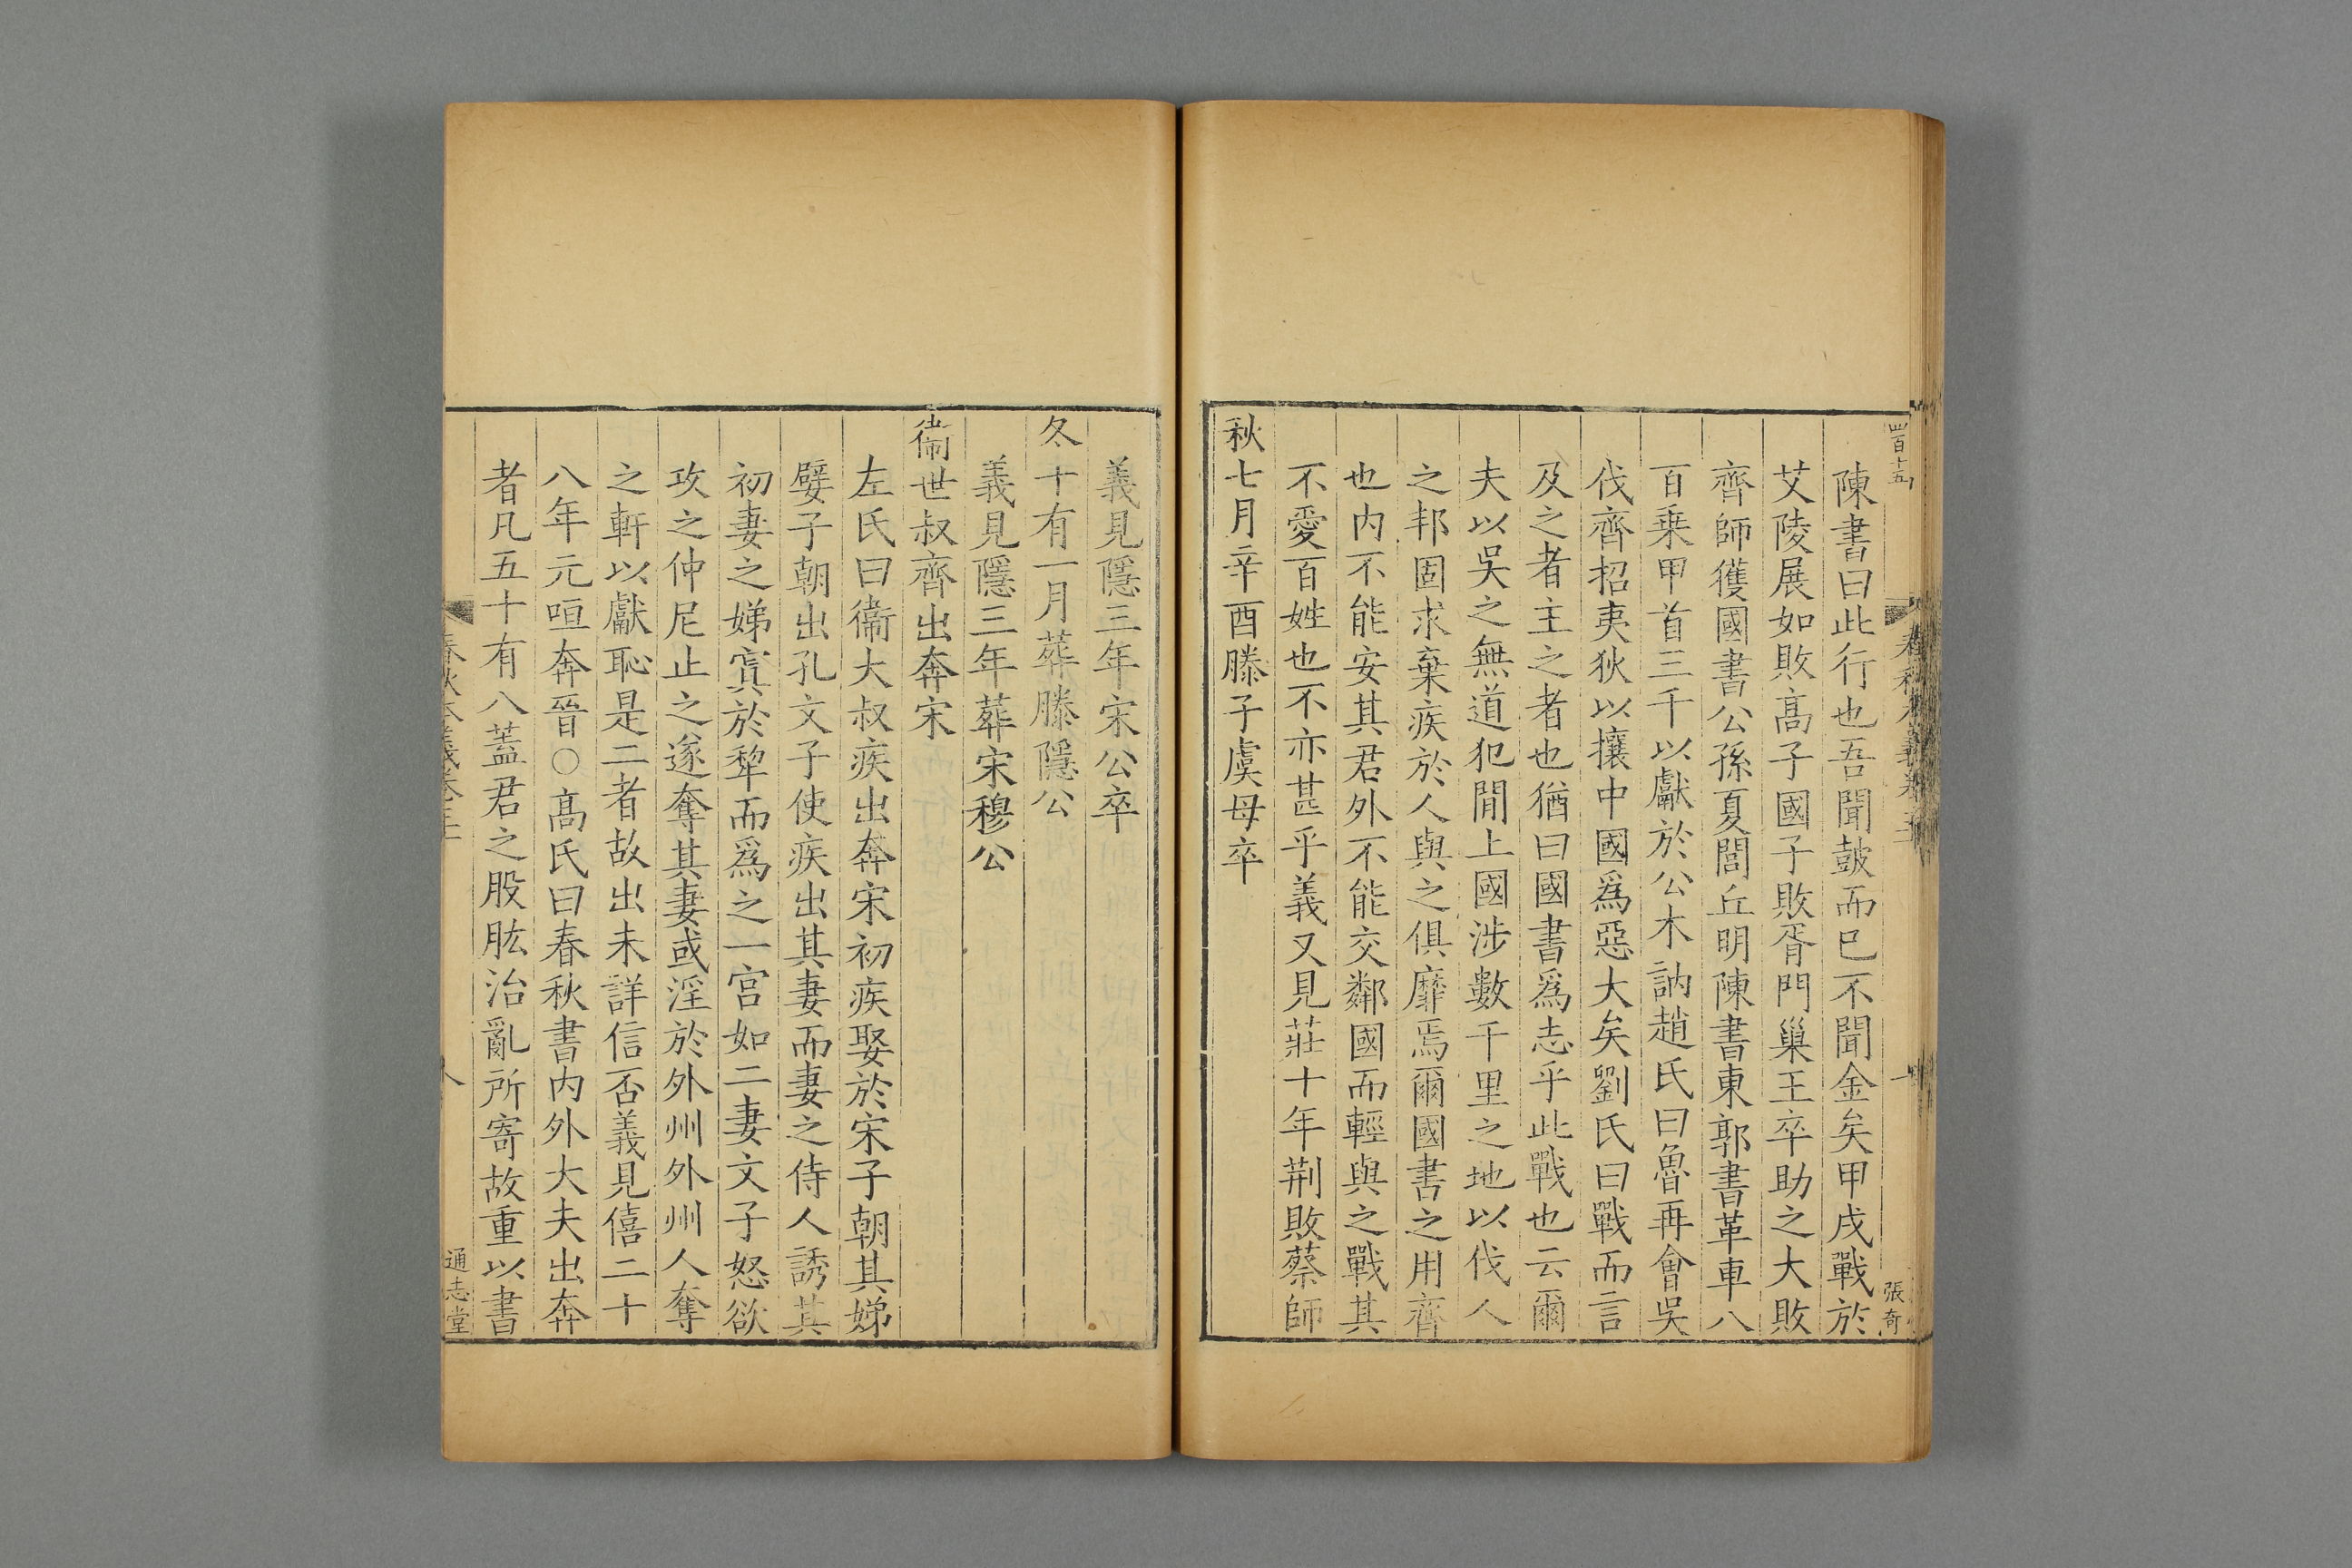 陳書曰此行也吾聞鼓而已不聞金矣甲戌戰於
艾陵展如敗高子國子敗胥門巢王卒助之大敗
齊師獲國書公孫夏閭丘明陳書東郭書革車八
百乗甲首三千以獻於公木訥趙氏曰魯再會吳
伐齊招夷狄以攘中國爲惡大矣劉氏曰戰而言
及之者主之者也猶曰國書爲志乎此戰也云爾
夫以吳之無道犯閒上國涉數千里之地以伐人
之邦固求棄疾於人與之俱靡焉爾國書之用齊
也内不能安其君外不能交鄰國而輕與之戰其
不愛百姓也不亦甚乎義又見莊十年荆敗蔡師
秋七月辛酉滕子虞母卒
張奇
義見隱三年宋公卒
冬十有一月葬滕隱公
義見隱三年葬宋穆公
衞世叔齊出奔宋
左氏曰衞大叔疾出奔宋初疾娶於宋子朝其娣
嬖子朝出孔文子使疾出其妻而妻之侍人誘其
初妻之娣寘於犂而爲之一宫如二妻文子怒欲
攻之仲尼止之遂奪其妻或淫於外州外州人奪
之軒以獻恥是二者故出未詳信否義見僖二十
八年元咺奔晉○髙氏曰春秋書内外大夫出奔
者凡五十有八蓋君之股肱治亂所寄故重以書
通志堂